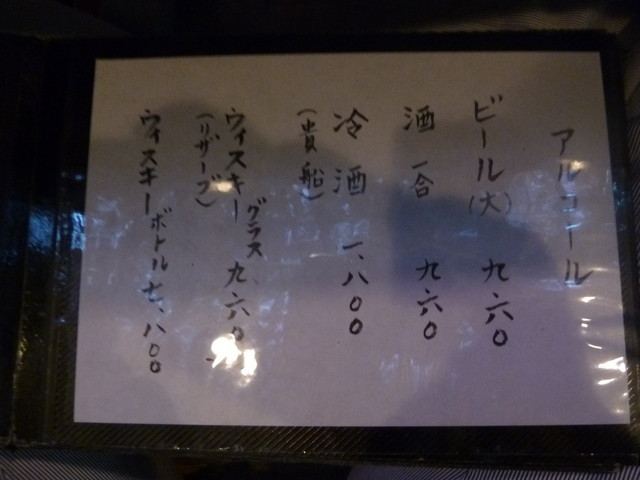 アルコール
ビール(大) 九六〇
酒 一合 九六〇
冷酒 一、八〇〇
(貴船)
ウィスキー グラス 九六〇
(リザーブ)
ウィスキー ボトル 七、八〇〇